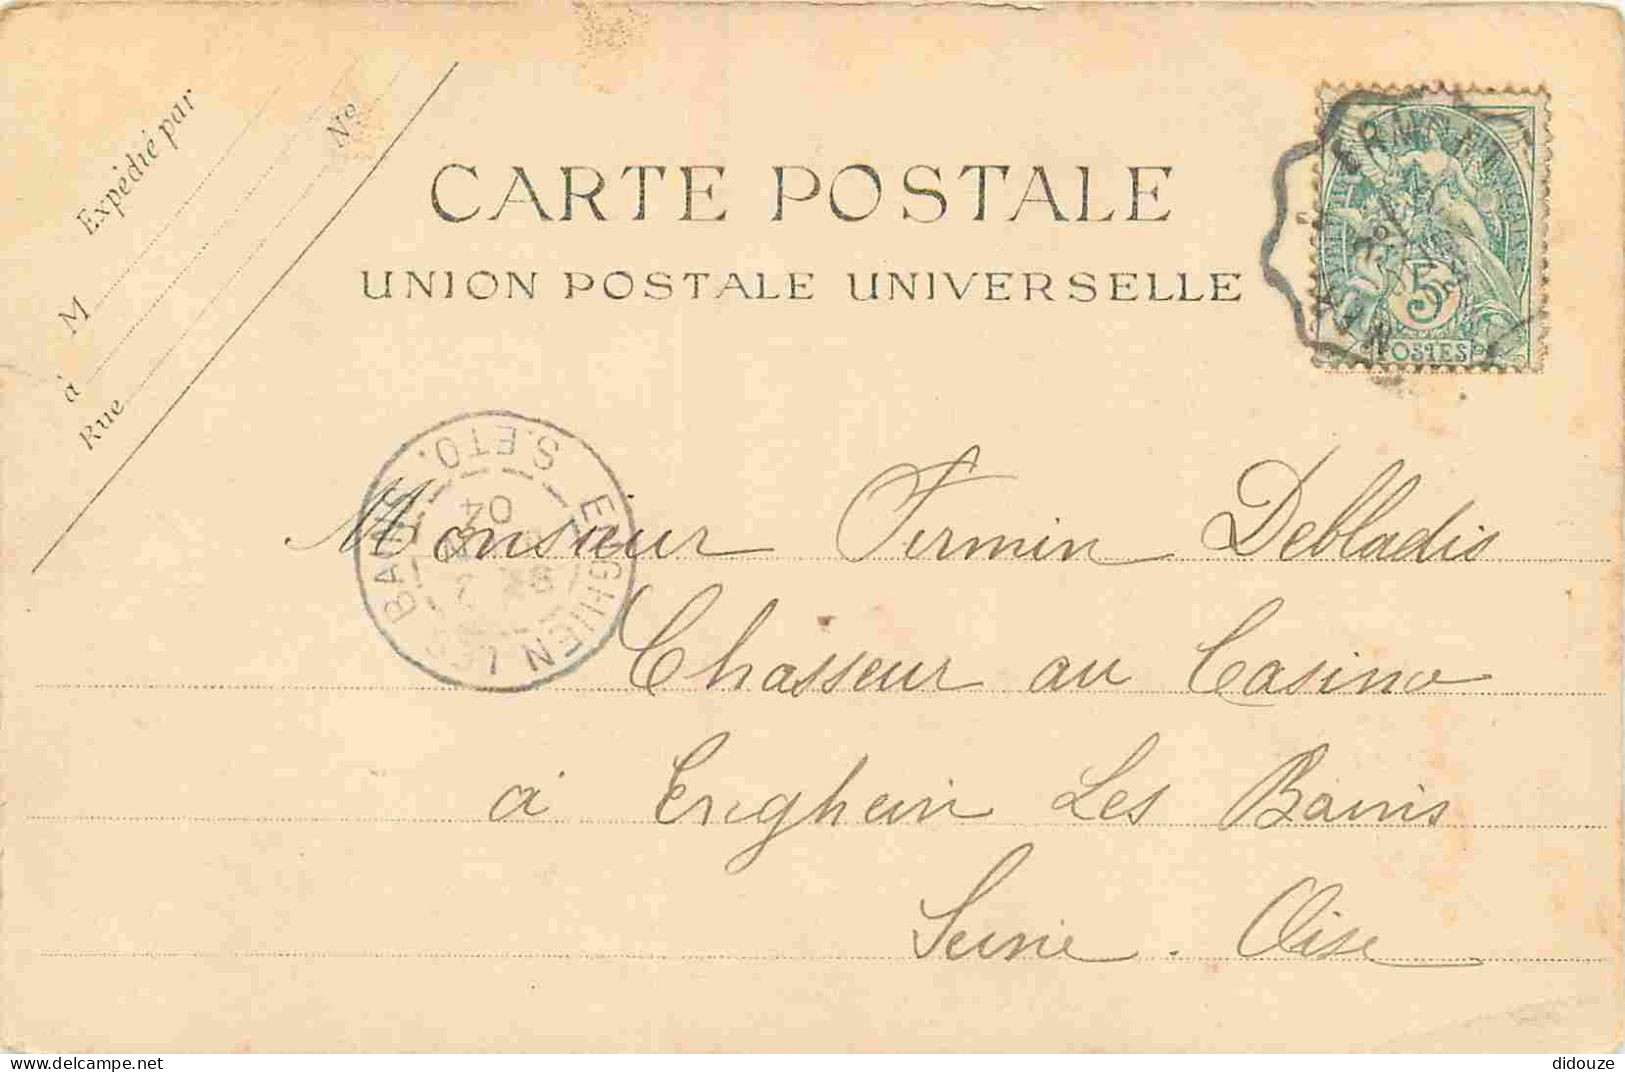 Expédié par
M
à
Rue
Nº
CARTE POSTALE
UNION POSTALE UNIVERSELLE
5
POSTES
ENGHIEN LES BAINS
S.ETO.
04
Monsieur Firmin Debladis
Chasseur au Casino
à Enghein Les Bains
Seine. Oise
didouze